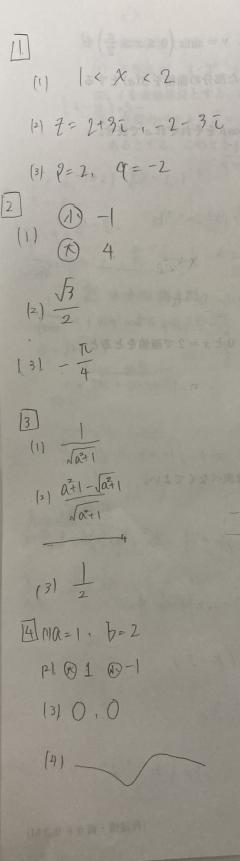 1
(1) 1 < x < 2
(2) z = 2+3i, -2-3i
(3) p=2, q=-2
2
(1) 小 -1
大 4
(2) √3/2
(3) -π/4
3
(1) 1/√(a²+1)
(2) (a²+1-√(a²+1))/√(a²+1)
(3) 1/2
4 (1) a=1, b=2
(2) 大 1 小 -1
(3) 0, 0
(4)